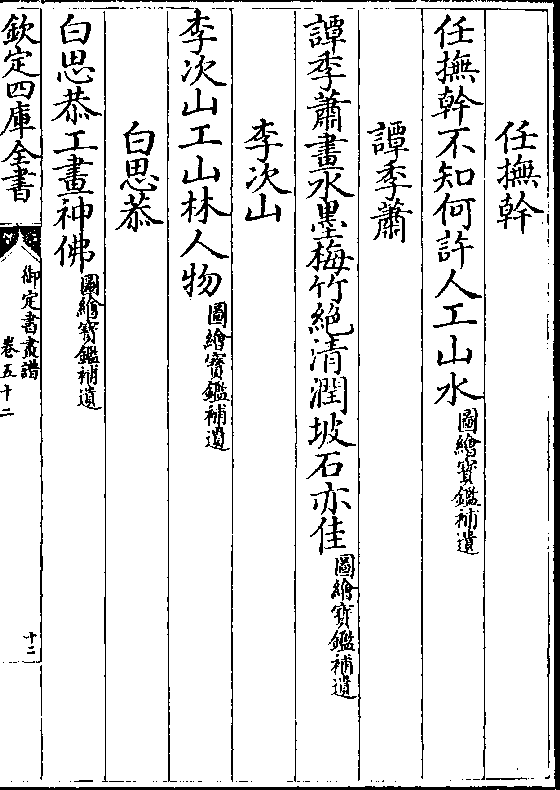 任撫幹
任撫幹不知何許人工山水圖繪寳鑑補遺
譚季蕭
譚季蕭畫水墨梅竹絶清潤坡石亦佳圖繪寳鑑補遺
李次山
李次山工山林人物圖繪寳鑑補遺
白思恭
白思恭工畫神佛圖繪寳鑑補遺
欽定四庫全書
御定書畫譜
卷五十二
十二